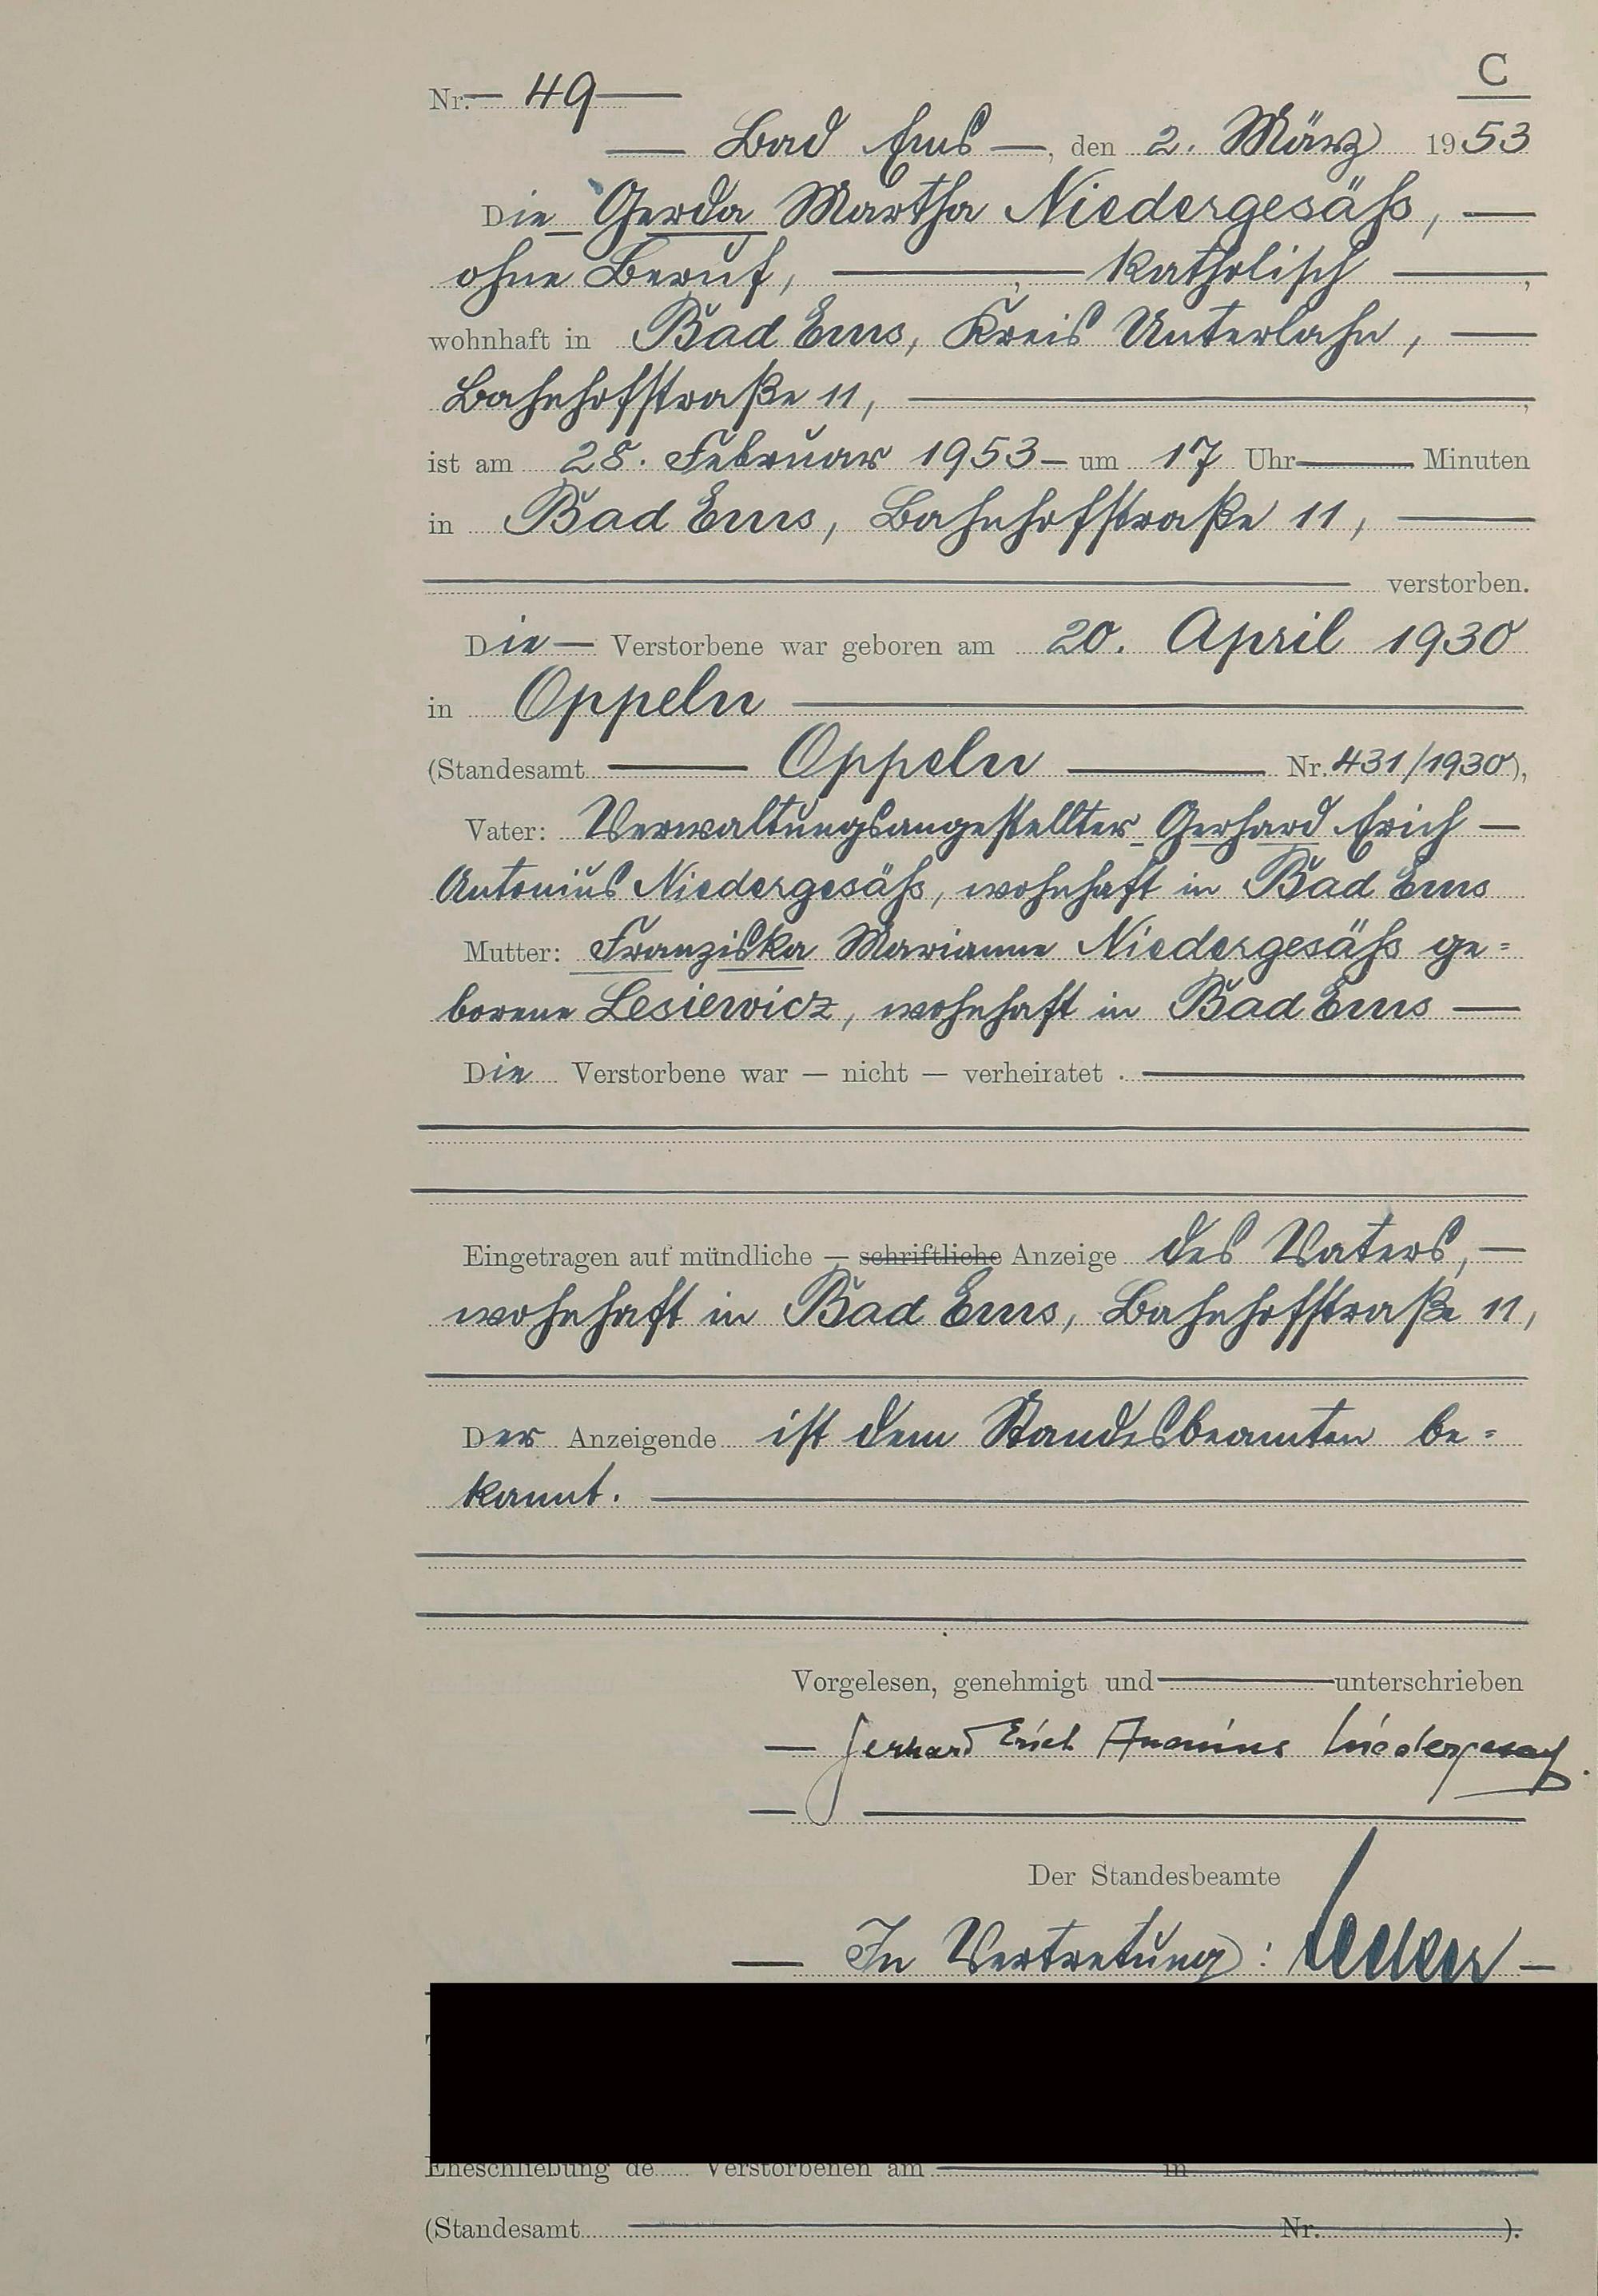 C
Nr. 49
Bad Ems, den 2. März 1953
Die Gerda Martha Niedergesäß,
ohne Beruf, katholisch,
wohnhaft in Bad Ems, Kreis Unterlahn,
Bahnhofstraße 11,
ist am 28. Februar 1953 um 17 Uhr Minuten
in Bad Ems, Bahnhofstraße 11,
verstorben.
Die Verstorbene war geboren am 20. April 1930
in Oppeln
(Standesamt Oppeln Nr. 431/1930),
Vater: Verwaltungsangestellter Gerhard Erich
Antonius Niedergesäß, wohnhaft in Bad Ems
Mutter: Franziska Marianne Niedergesäß ge=
borene Lesiewicz, wohnhaft in Bad Ems
Die Verstorbene war — nicht — verheiratet.
Eingetragen auf mündliche — schriftliche Anzeige des Vaters,
wohnhaft in Bad Ems, Bahnhofstraße 11,
Der Anzeigende ist dem Standesbeamten be=
kannt.
Vorgelesen, genehmigt und unterschrieben
Gerhard Erich Antonius Niedergesäß.
Der Standesbeamte
In Vertretung:
Eheschließung de Verstorbenen am in
(Standesamt Nr. ).